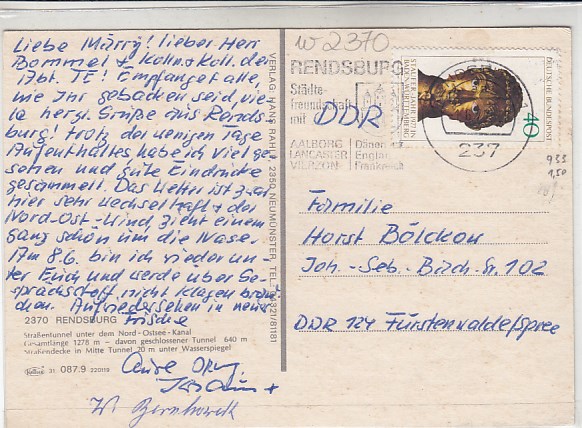 Liebe Märry! Lieber Herr
Bommel + Kolln.+Koll. der
Abt. TE! Empfanget alle,
wie Ihr gebacken seid, vie-
le herzl. Grüße aus Rends-
burg! Trotz der wenigen Tage
Aufenthaltes habe ich viel ge-
sehen und gute Eindrücke
gesammelt. Das Wetter ist zwar
hier sehr wechselhaft + der
Nord-Ost-Wind zieht einem
ganz schön um die Nase.
Am 8.6. bin ich wieder un-
ter Euch und werde über Ge-
sprächsstoff nicht klagen brau-
chen. Auf Wiedersehen in neuer
Frische
2370 RENDSBURG
Straßentunnel unter dem Nord-Ostsee-Kanal
Gesamtlänge 1278 m - davon geschlossener Tunnel 640 m
Straßendecke in Mitte Tunnel 20 m unter Wasserspiegel
31 087.9 220119
Eure
W. Bernhardt
VERLAG: HANS RAHN, 2350 NEUMÜNSTER, TEL. 04321/81181
W 2370
RENDSBURG
Städte-
freundschaft
mit DDR
AALBORG Dänemark
LANCASTER England
VIERZON Frankreich
237
STAUFER-JAHR 1977 IN
BADEN-WÜRTTEMBERG
DEUTSCHE BUNDESPOST
40
933
1,50
Familie
Horst Bölckow
Joh.-Seb.-Bach-Str. 102
DDR 124 Fürstenwalde/Spree